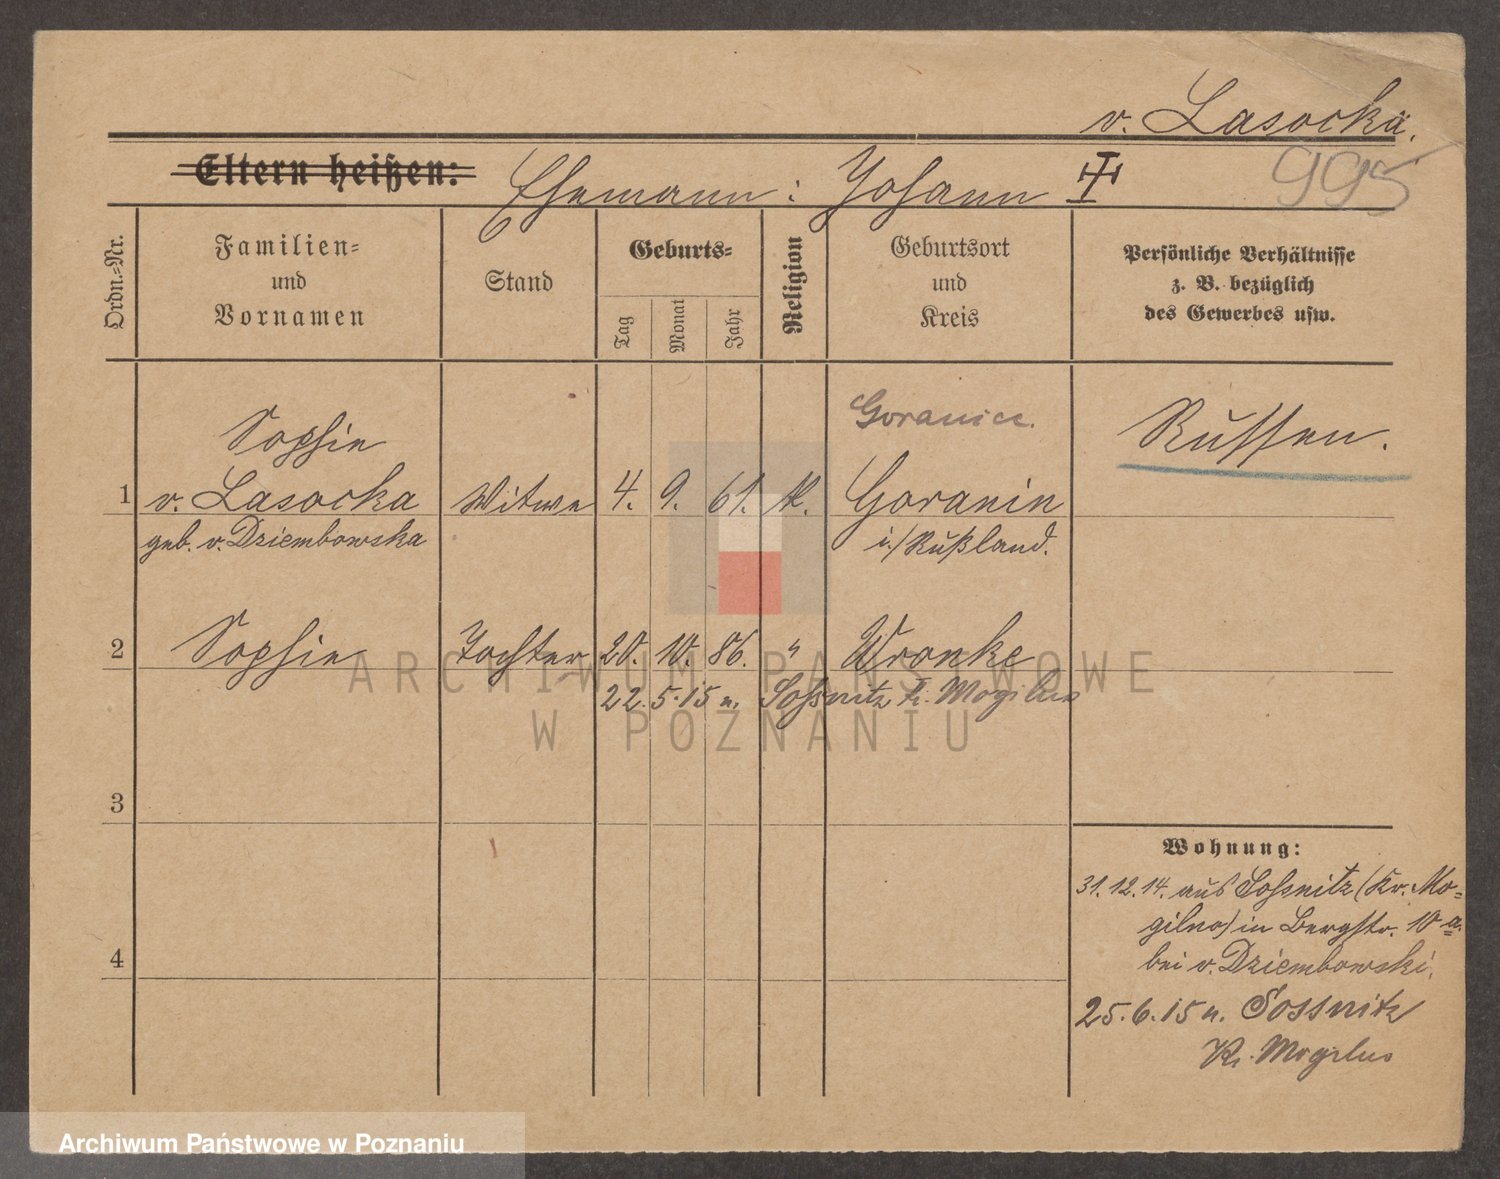 v. Lasocka.
995
Eltern heißen: Ehemann: Johann
Ordn.=Nr.
Familien=
und
Vornamen
Stand
Geburts=
Tag
Monat
Jahr
Religion
Geburtsort
und
Kreis
Persönliche Verhältnisse
z. B. bezüglich
des Gewerbes usw.
Goranice.
Russen.
Sophie
1 v. Lasocka Witwe 4. 9. 61. K. Goranin
geb. v. Dziembowska i./Rußland.
2 Sophie Tochter 20. 10. 86. " Wronke
22.5.15 n. Sossnitz Kr. Mogilno
3
4
Wohnung:
31.12.14. aus Sossnitz (Kr. Mo=
gilno) in Bergstr. 10 a.
bei v. Dziembowski.
25.6.15 n. Sossnitz
Kr. Mogilno
ARCHIWUM PAŃSTWOWE
W POZNANIU
Archiwum Państwowe w Poznaniu